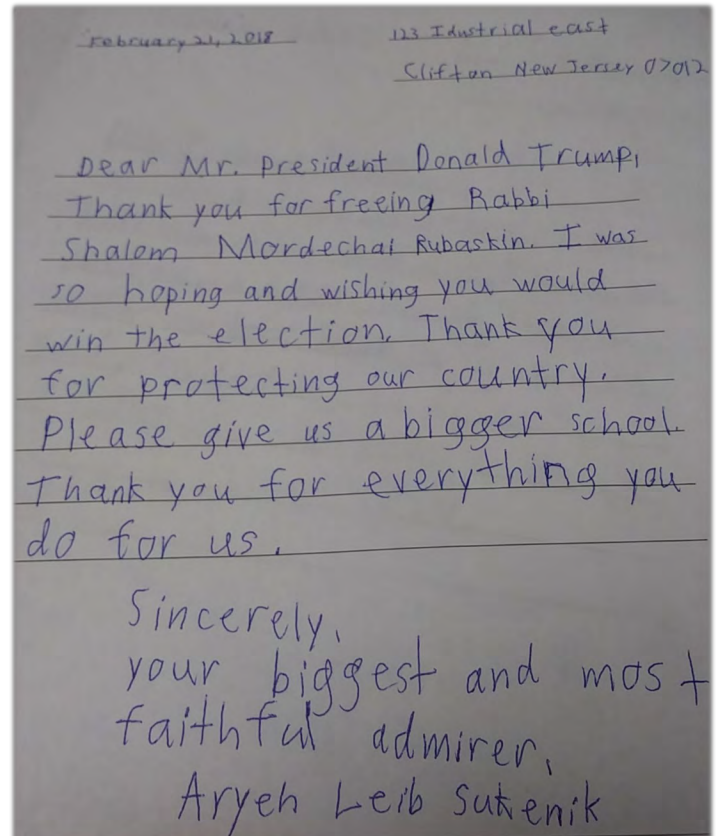 February 21, 2018
123 Idustrial east
Clifton New Jersey 07012
Dear Mr. President Donald Trump,
Thank you for freeing Rabbi
Shalom Mordechai Rubaskin. I was
so hoping and wishing you would
win the election. Thank you
for protecting our country.
Please give us a bigger school.
Thank you for everything you
do for us.
Sincerely,
your biggest and most
faithful admirer,
Aryeh Leib Sutenik